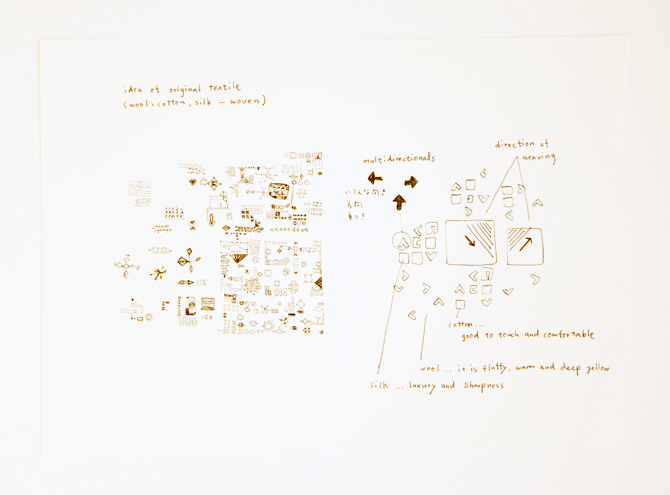 idea of original textile
(wool, cotton, silk - woven)
multidirectionals
direction of
weaving
cotton...
good to touch and comfortable
wool... it is fluffy, warm and deep yellow
silk ... luxury and sharpness